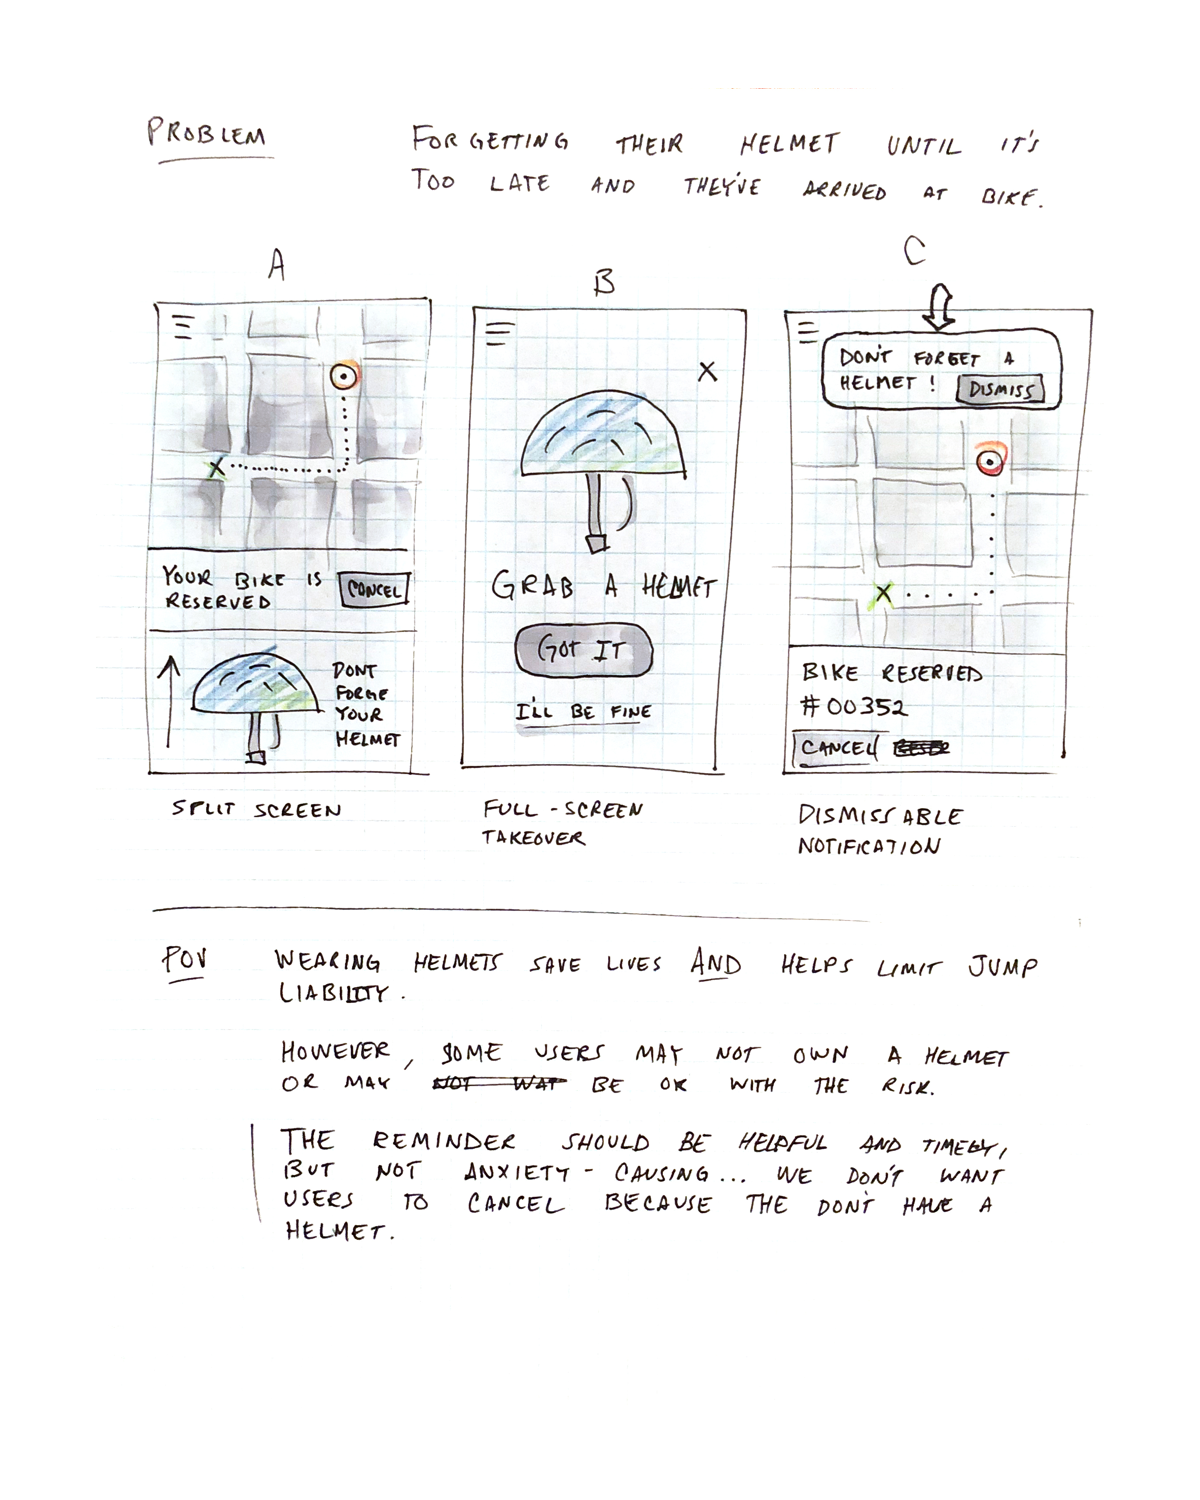 PROBLEM
FORGETTING THEIR HELMET UNTIL IT'S
TOO LATE AND THEY'VE ARRIVED AT BIKE.
A
B
C
YOUR BIKE IS
RESERVED
CANCEL
DONT
FORGE
YOUR
HELMET
SPLIT SCREEN
X
GRAB A HELMET
GOT IT
I'LL BE FINE
FULL-SCREEN
TAKEOVER
DON'T FORGET A
HELMET!
DISMISS
BIKE RESERVED
#00352
CANCEL
DISMISSABLE
NOTIFICATION
POV
WEARING HELMETS SAVE LIVES AND HELPS LIMIT JUMP
LIABILITY.
HOWEVER, SOME USERS MAY NOT OWN A HELMET
OR MAY NOT WAT BE OK WITH THE RISK.
THE REMINDER SHOULD BE HELPFUL AND TIMELY,
BUT NOT ANXIETY-CAUSING... WE DON'T WANT
USERS TO CANCEL BECAUSE THE DON'T HAVE A
HELMET.